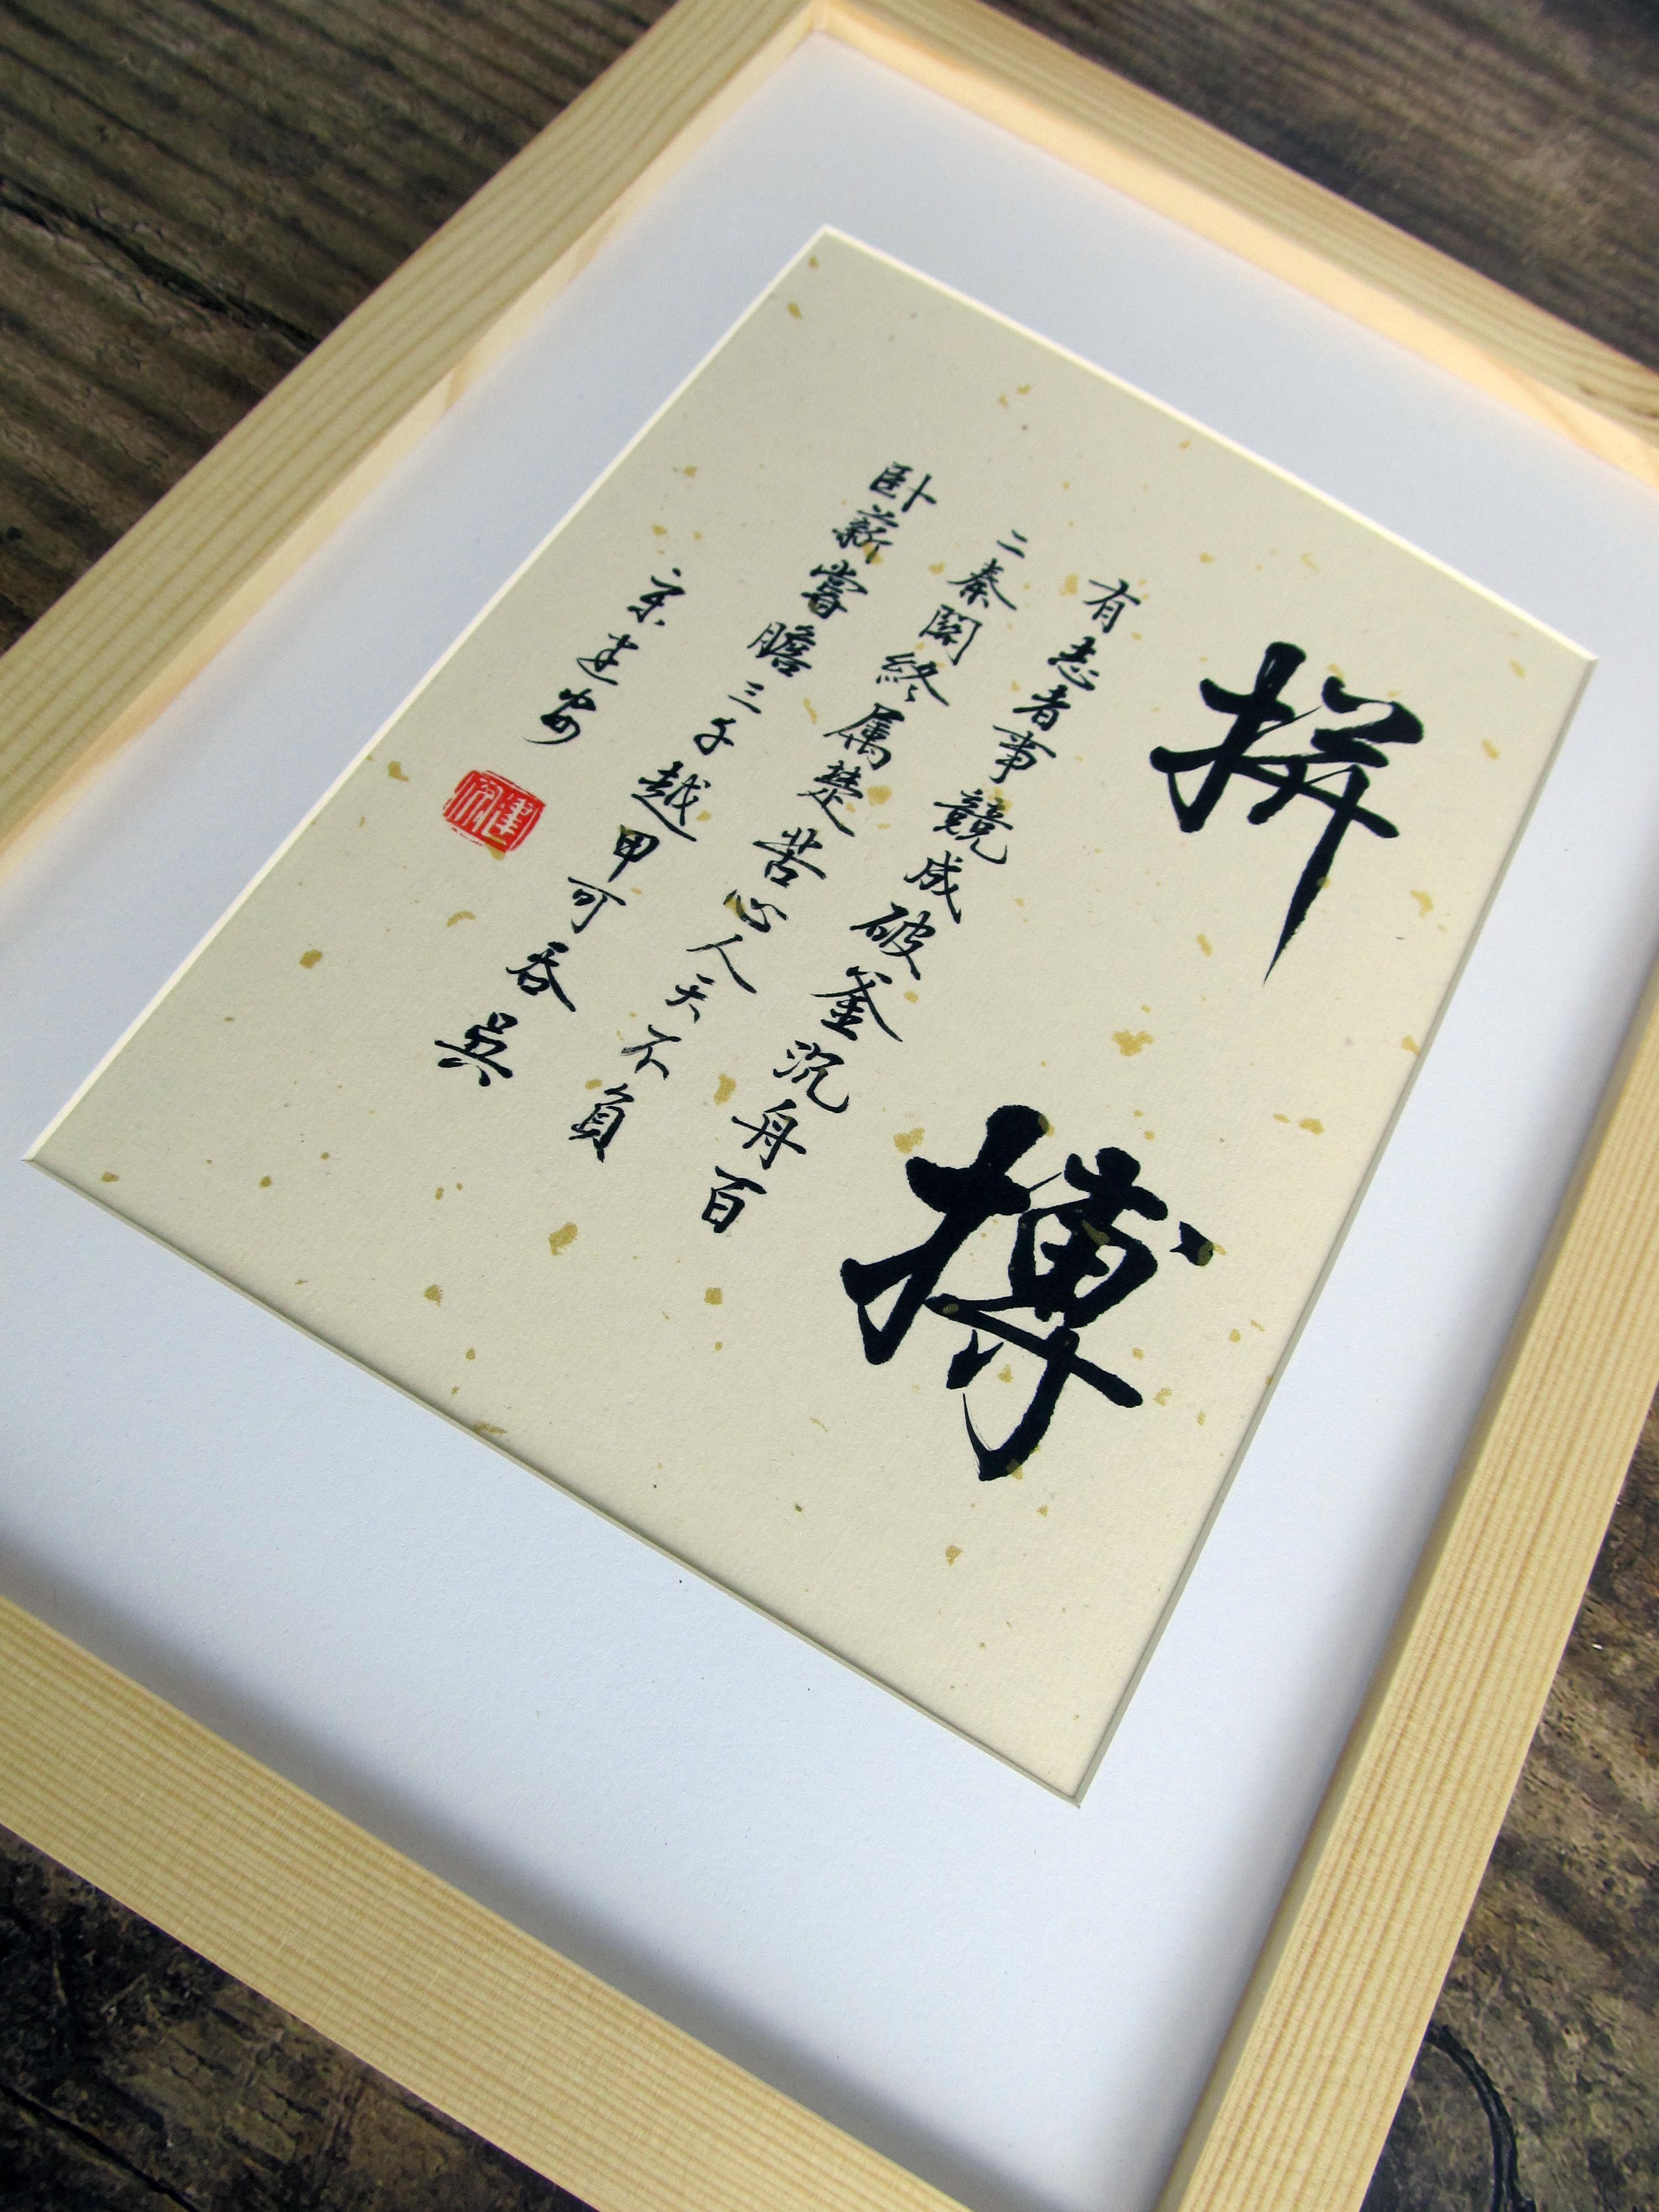 拼搏
有志者事競成破釜沉舟百
二秦關終属楚苦心人天不負
卧薪嘗膽三千越甲可吞吳